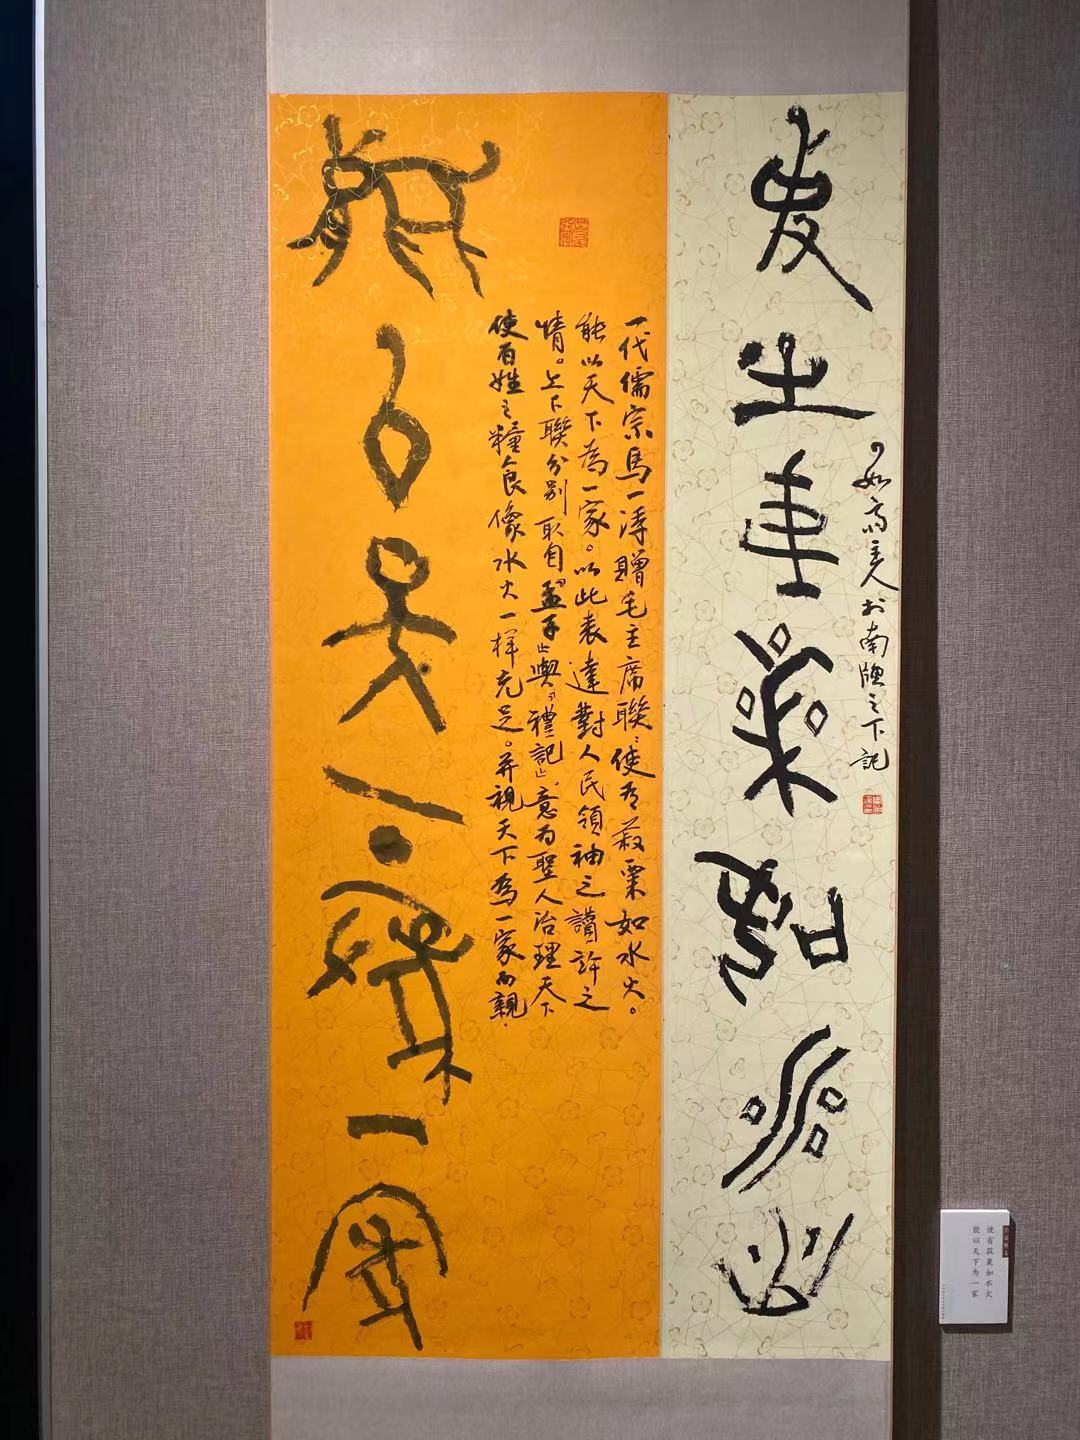 使有菽粟如水火
如斋主人於南牖之下記
能以天下為一家
一代儒宗馬一浮贈毛主席聯：使有菽粟如水火。
能以天下為一家。以此表達對人民領袖之讚許之
情。上下聯分别取自『孟子』與『禮記』。意为聖人治理天下
使百姓之糧食像水火一样充足。并視天下為一家而親.
使有菽粟如水火
能以天下为一家